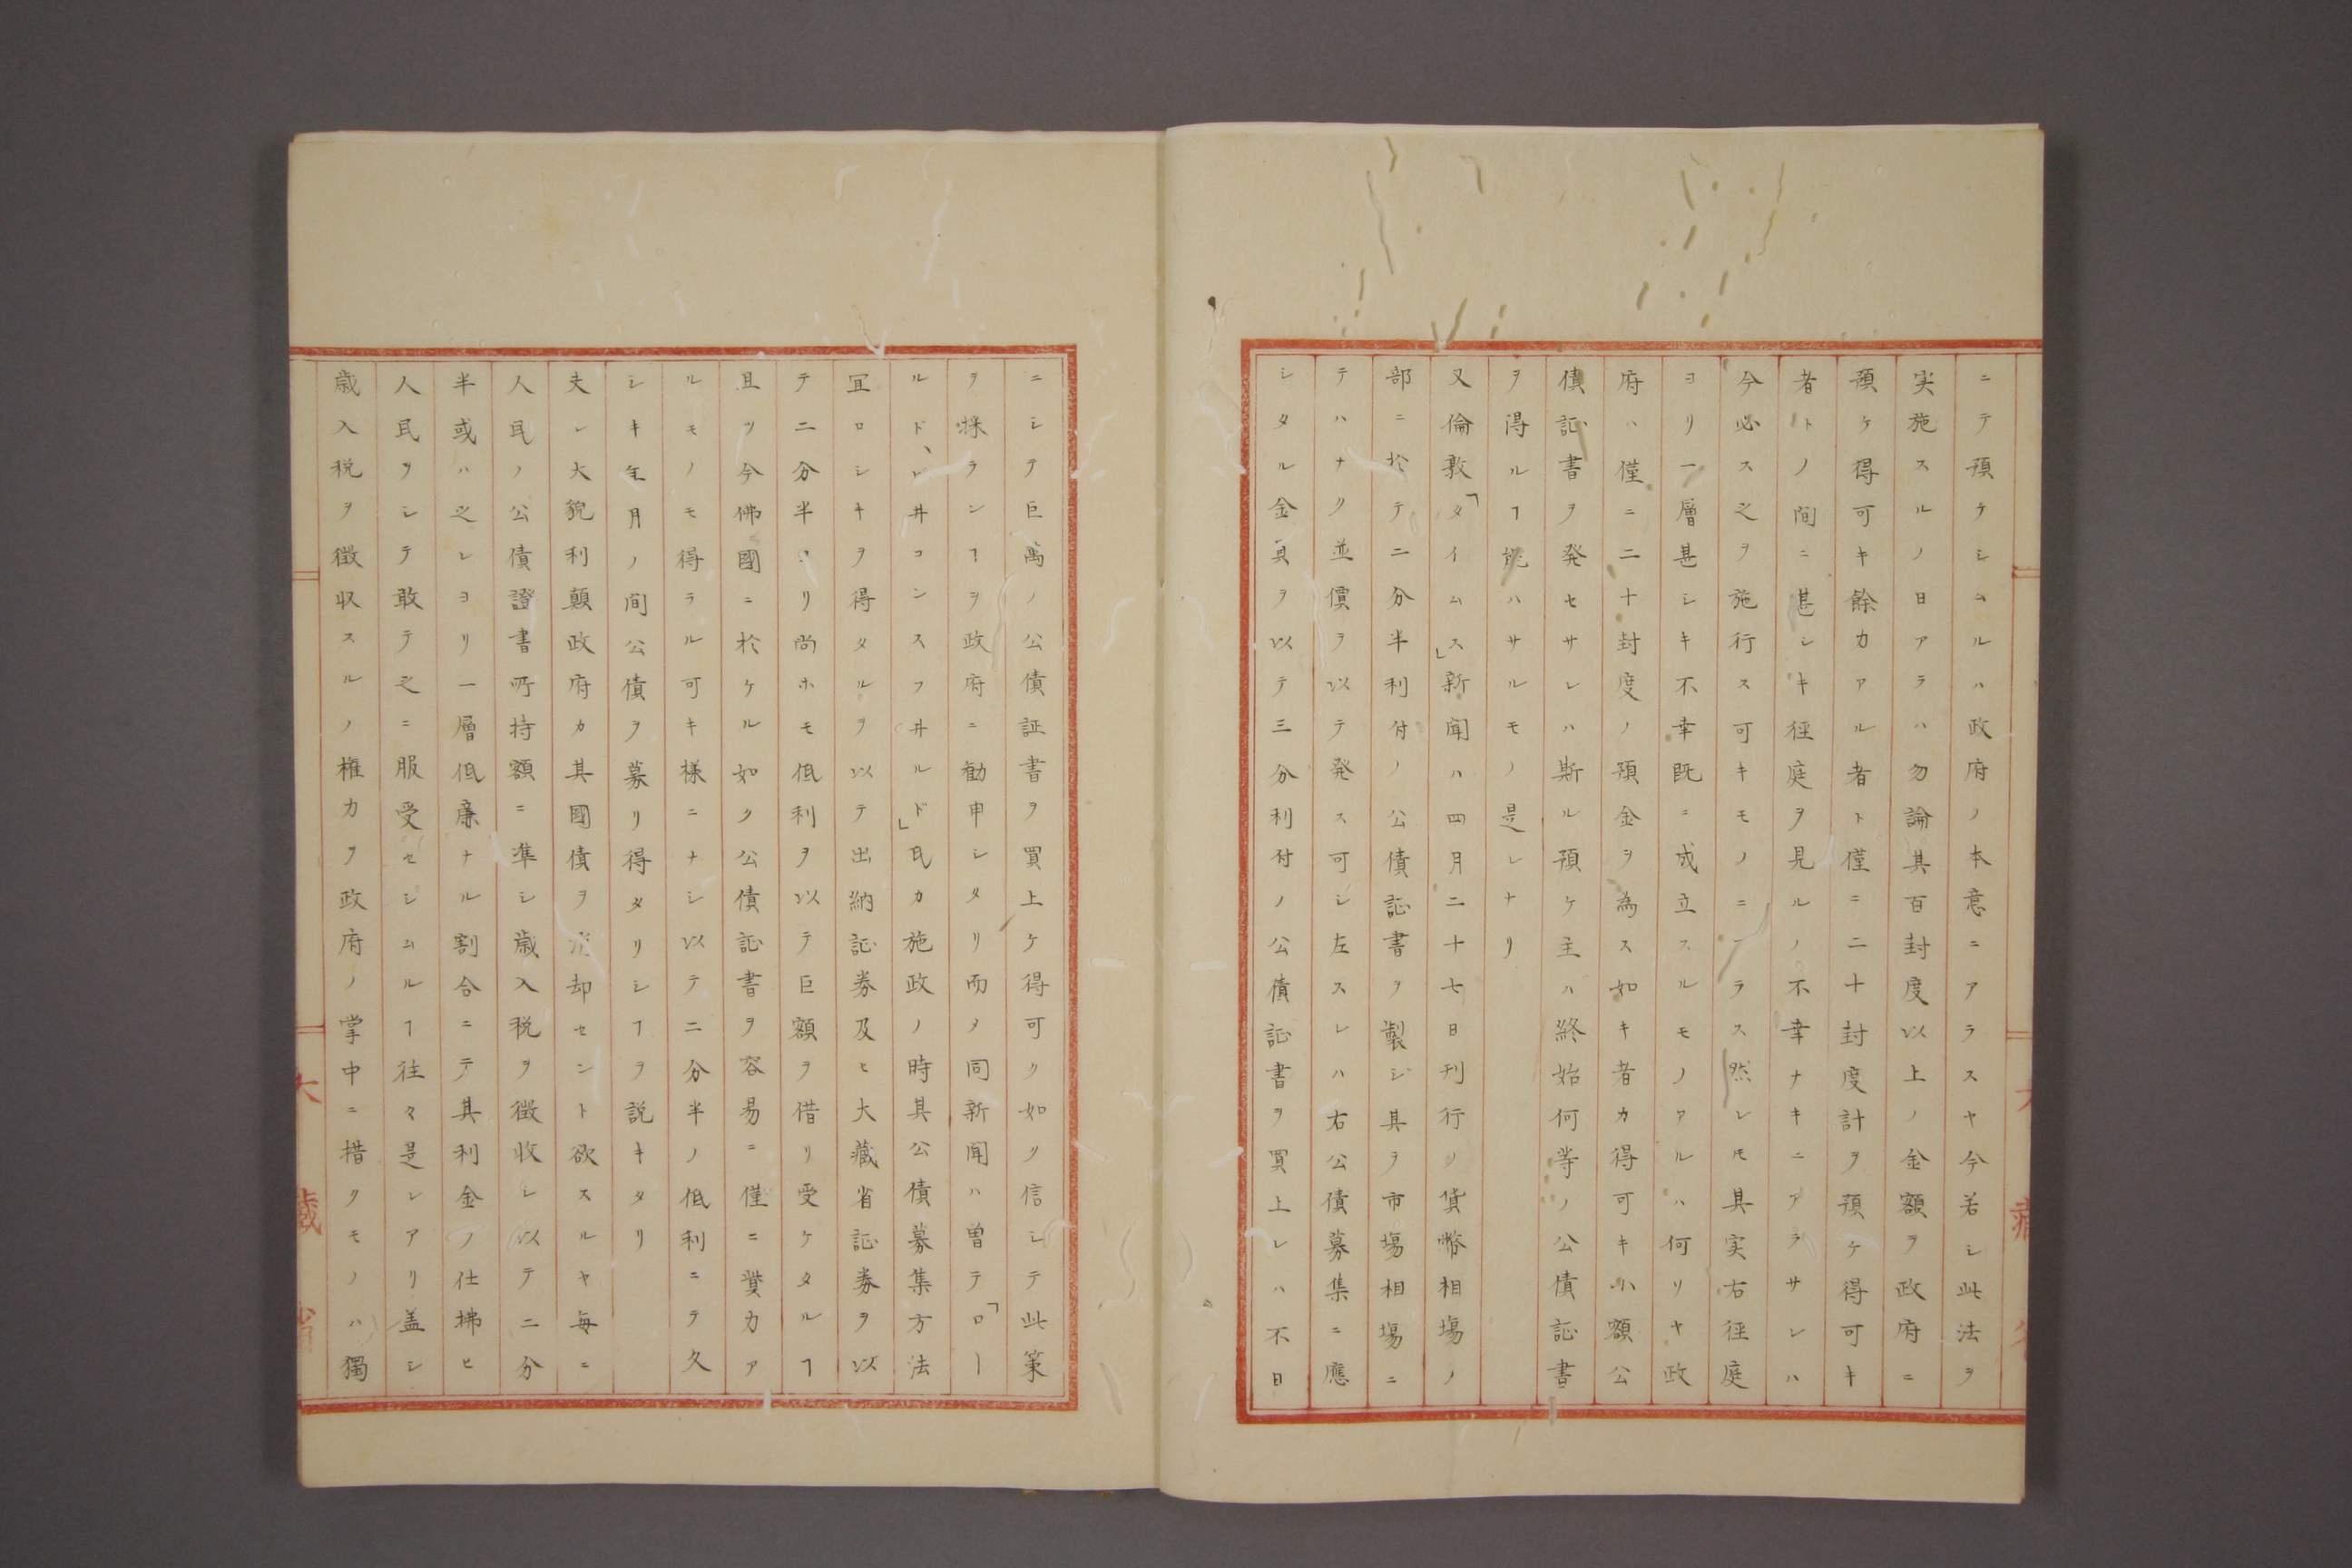 ニテ預ケシムルハ政府ノ本意ニアラスヤ今若シ此法ヲ
実施スルノ日アラハ勿論其百封度以上ノ金額ヲ政府ニ
預ケ得可キ餘カアル者ト僅ニ二十封度計ヲ預ケ得可キ
者トノ間ニ甚シキ径庭ヲ見ルノ不幸ナキニアラサレハ
今必ス之ヲ施行ス可キモノニアラス然レモ其実右径庭
ヨリ一層甚シキ不幸既ニ成立スルモノアルハ何リヤ政
府ハ僅ニ二十封度ノ預金ヲ為ス如キ者カ得可キ小額公
債証書ヲ発セサレハ斯ル預ケ主ハ終始何等ノ公債証書
ヲ得ルヿ能ハサルモノ是レナリ
又倫敦「タイムス」新聞ハ四月二十七日刊行ノ貨幣相場ノ
部ニ於テ二分半利付ノ公債証書ヲ製シ其ヲ市場相場ニ
テハナク並價ヲ以テ発ス可シ左スレハ右公債募集ニ應
シタル金員ヲ以テ三分利付ノ公債証書ヲ買上レハ不日
ニシテ巨萬ノ公債証書ヲ買上ケ得可ク如ク信シテ此策
ヲ採ランヿヲ政府ニ勧申シタリ而メ同新聞ハ曽テ「ロー
ルド、レ井コンスフ井ルド」氏カ施政ノ時其公債募集方法
宜ロシキヲ得タルヲ以テ出納証券及ヒ大藏省証券ヲ以
テ二分半ヨリ尚ホモ低利ヲ以テ巨額ヲ借リ受ケタルヿ
且ツ今佛國ニ於ケル如ク公債証書ヲ容易ニ僅ニ糞カア
ルモノモ得ラル可キ様ニナシ以テ二分半ノ低利ニテ久
シキ年月ノ間公債ヲ募リ得タリシヿヲ説キタリ
夫レ大貌利顛政府カ其國債ヲ消却セント欲スルヤ毎ニ
人民ノ公債證書所持額ニ準シ歳入税ヲ徴收シ以テ二分
半或ハ之レヨリ一層低廉ナル割合ニテ其利金ノ仕拂ヒ
人民ヲシテ敢テ之ニ服受セシムルヿ往々是レアリ盖シ
歳入税ヲ徴収スルノ権力ヲ政府ノ掌中ニ措クモノハ獨
大藏省
大藏省